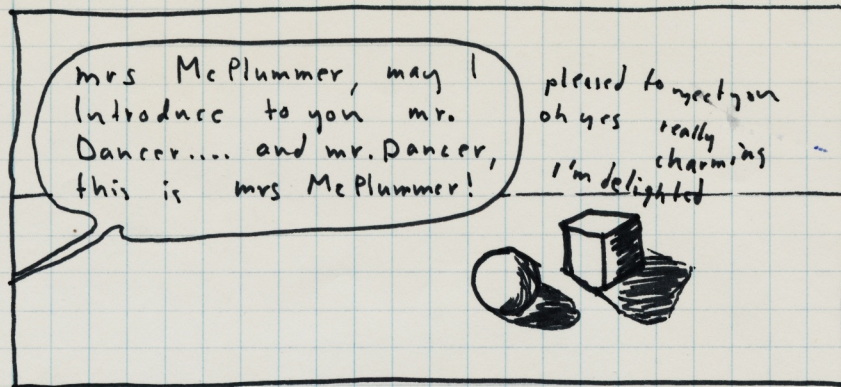 mrs McPlummer, may I
Introduce to you mr.
Dancer.... and mr. Dancer,
this is mrs McPlummer!
pleased to meet you
oh yes really
charming
I'm delighted